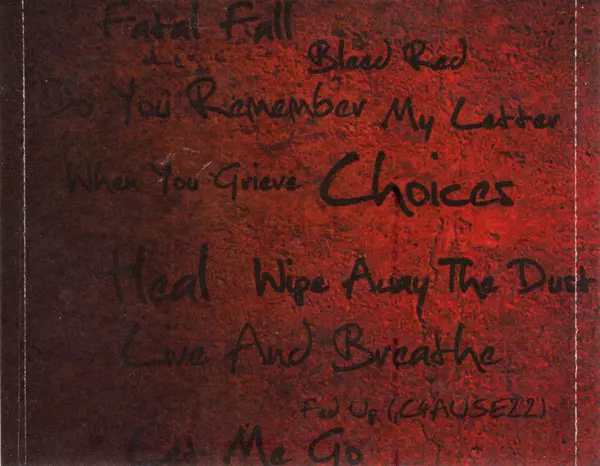 Fatal Fall
Bleed Red
Do You Remember My Letter
When You Grieve Choices
Heal Wipe Away The Dust
Live And Breathe
Fed Up (
Let Me Go